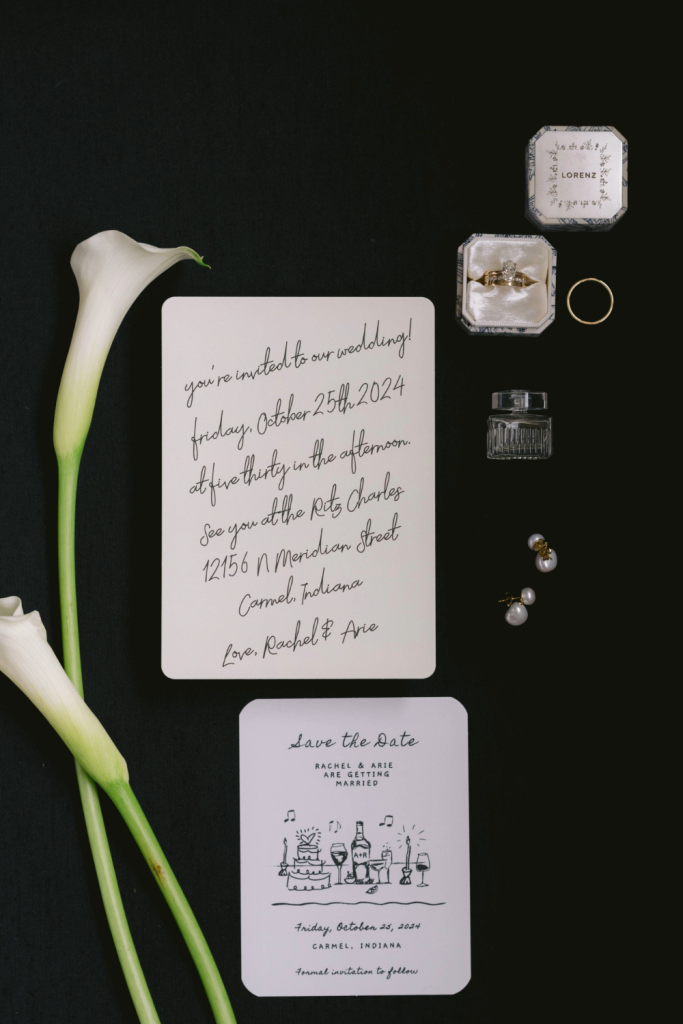 LORENZ
you're invited to our wedding!
friday, October 25th 2024
at five thirty in the afternoon.
See you at the Ritz Charles
12156 N Meridian Street
Carmel, Indiana
Love, Rachel & Arie
Save the Date
RACHEL & ARIE
ARE GETTING
MARRIED
A+R
Friday, October 25, 2024
CARMEL, INDIANA
Formal invitation to follow